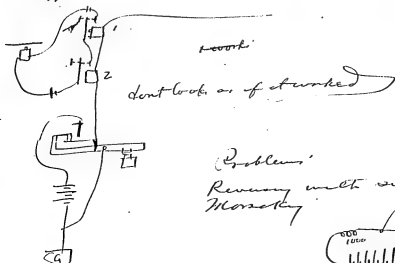 1
work
2
dont look as if it worked
Problems
Reversing with
Morse key
G
1000